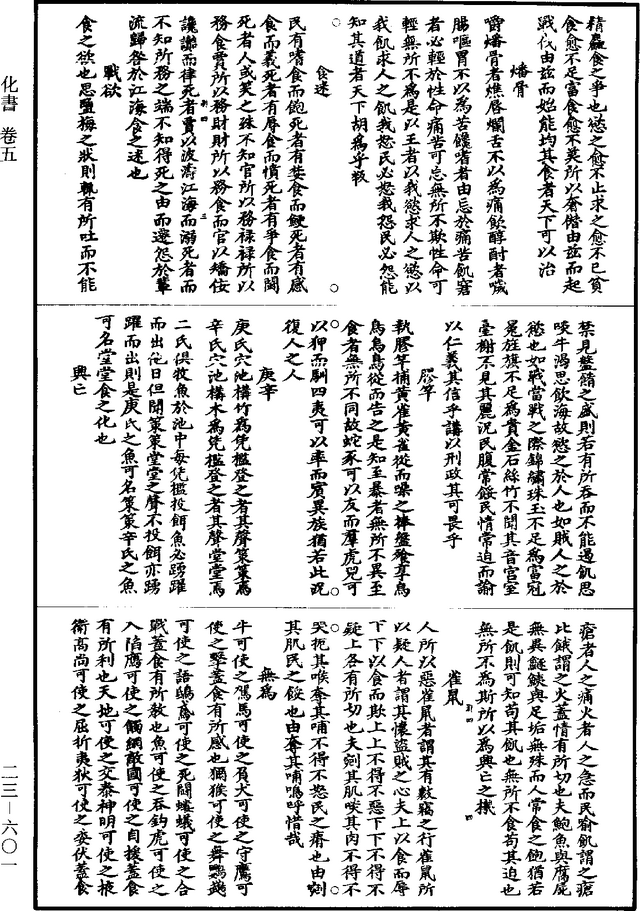 化書 卷五
二三—六〇一
精蟲食之爭也慾之愈不止求之愈不已貧
食愈不足富食愈不美所以奢僭由茲而起
戰伐由茲而始能均其食者天下可以治
燔骨
嚼燔骨者燋唇爛舌不以為痛飲醇酎者嘰
腸嘔胃不以為苦饞嗜者由忘於痛苦飢窘
者必輕於性命痛苦可忘無所不欺性命可
輕無所不為是以王者以我慾求人之慾以
我飢求人之飢我怒民必怒我怨民必怨能
知其道者天下胡為乎叛
食迷
民有嗜食而飽死者有婪食而鯁死者有感
食而義死者有辱食而憤死者有爭食而鬬
死者人或笑之殊不知官所以務祿祿所以
務食賈所以務財財所以務食而官以矯佞
讒讟而律死者賈以波濤江海而溺死者而
不知所務之端不知得死之由而遷怨於輩
流歸咎於江海食之迷也
戰欲
食之欲也思鹽梅之狀則輒有所吐而不能
禁見盤餚之盛則若有所吞而不能遏飢思
啖牛渴思飲海故慾之於人也如賊人之於
慾也如戰當戰之際錦繡珠玉不足為富冠
冕旌旗不足為貴金石絲竹不聞其音宮室
臺榭不見其麗況民腹常餒民情常迫而諭
以仁義其信乎講以刑政其可畏乎
膠竿
執膠竿捕黃雀黃雀從而噪之捧盤飱享烏
烏烏從而告之是知至暴者無所不異至
食者無所不同故蛇豕可以友而羣虎兕可
以狎而馴四夷可以率而賓異族猶若此況
復人之人
庚辛
庚氏穴池構竹為凭檻登之者其聲策策焉
辛氏穴池構木為凭檻登之者其聲堂堂焉
二氏俱牧魚於池中每凭檻投餌魚必踴躍
而出佗日但聞策策堂堂之聲不投餌亦踴
躍而出則是庚氏之魚可名策策辛氏之魚
可名堂堂食之化也
興亡
瘡者人之痛火者人之急而民喻飢謂之瘡
比餓謂之火蓋情有所切也夫鮑魚與腐屍
無異鱁鮧與足垢無殊而人常食之飽猶若
是飢則可知苟其飢也無所不食苟其迫也
無所不為斯所以為興亡之機
雀鼠
人所以惡雀鼠者謂其有攘竊之行雀鼠所
以疑人者謂其懷盜賊之心夫上以食而辱
下下以食而欺上上不得不惡下下不得不
疑上各有所切也夫剜其肌啖其肉不得不
哭扼其喉奪其哺不得不怒民之瘠也由剜
其肌民之餒也由奪其哺嗚呼惜哉
無為
牛可使之駕馬可使之負犬可使之守鷹可
使之擊蓋食有所感也獼猴可使之舞鸚鵡
可使之語鴟鳶可使之死鬭螻蟻可使之合
戰蓋食有所教也魚可使之吞鈎虎可使之
入陷鴈可使之觸網敵國可使之自援蓋食
有所利也天地可使之交泰神明可使之掖
衛高尚可使之屈折夷狄可使之委伏蓋食